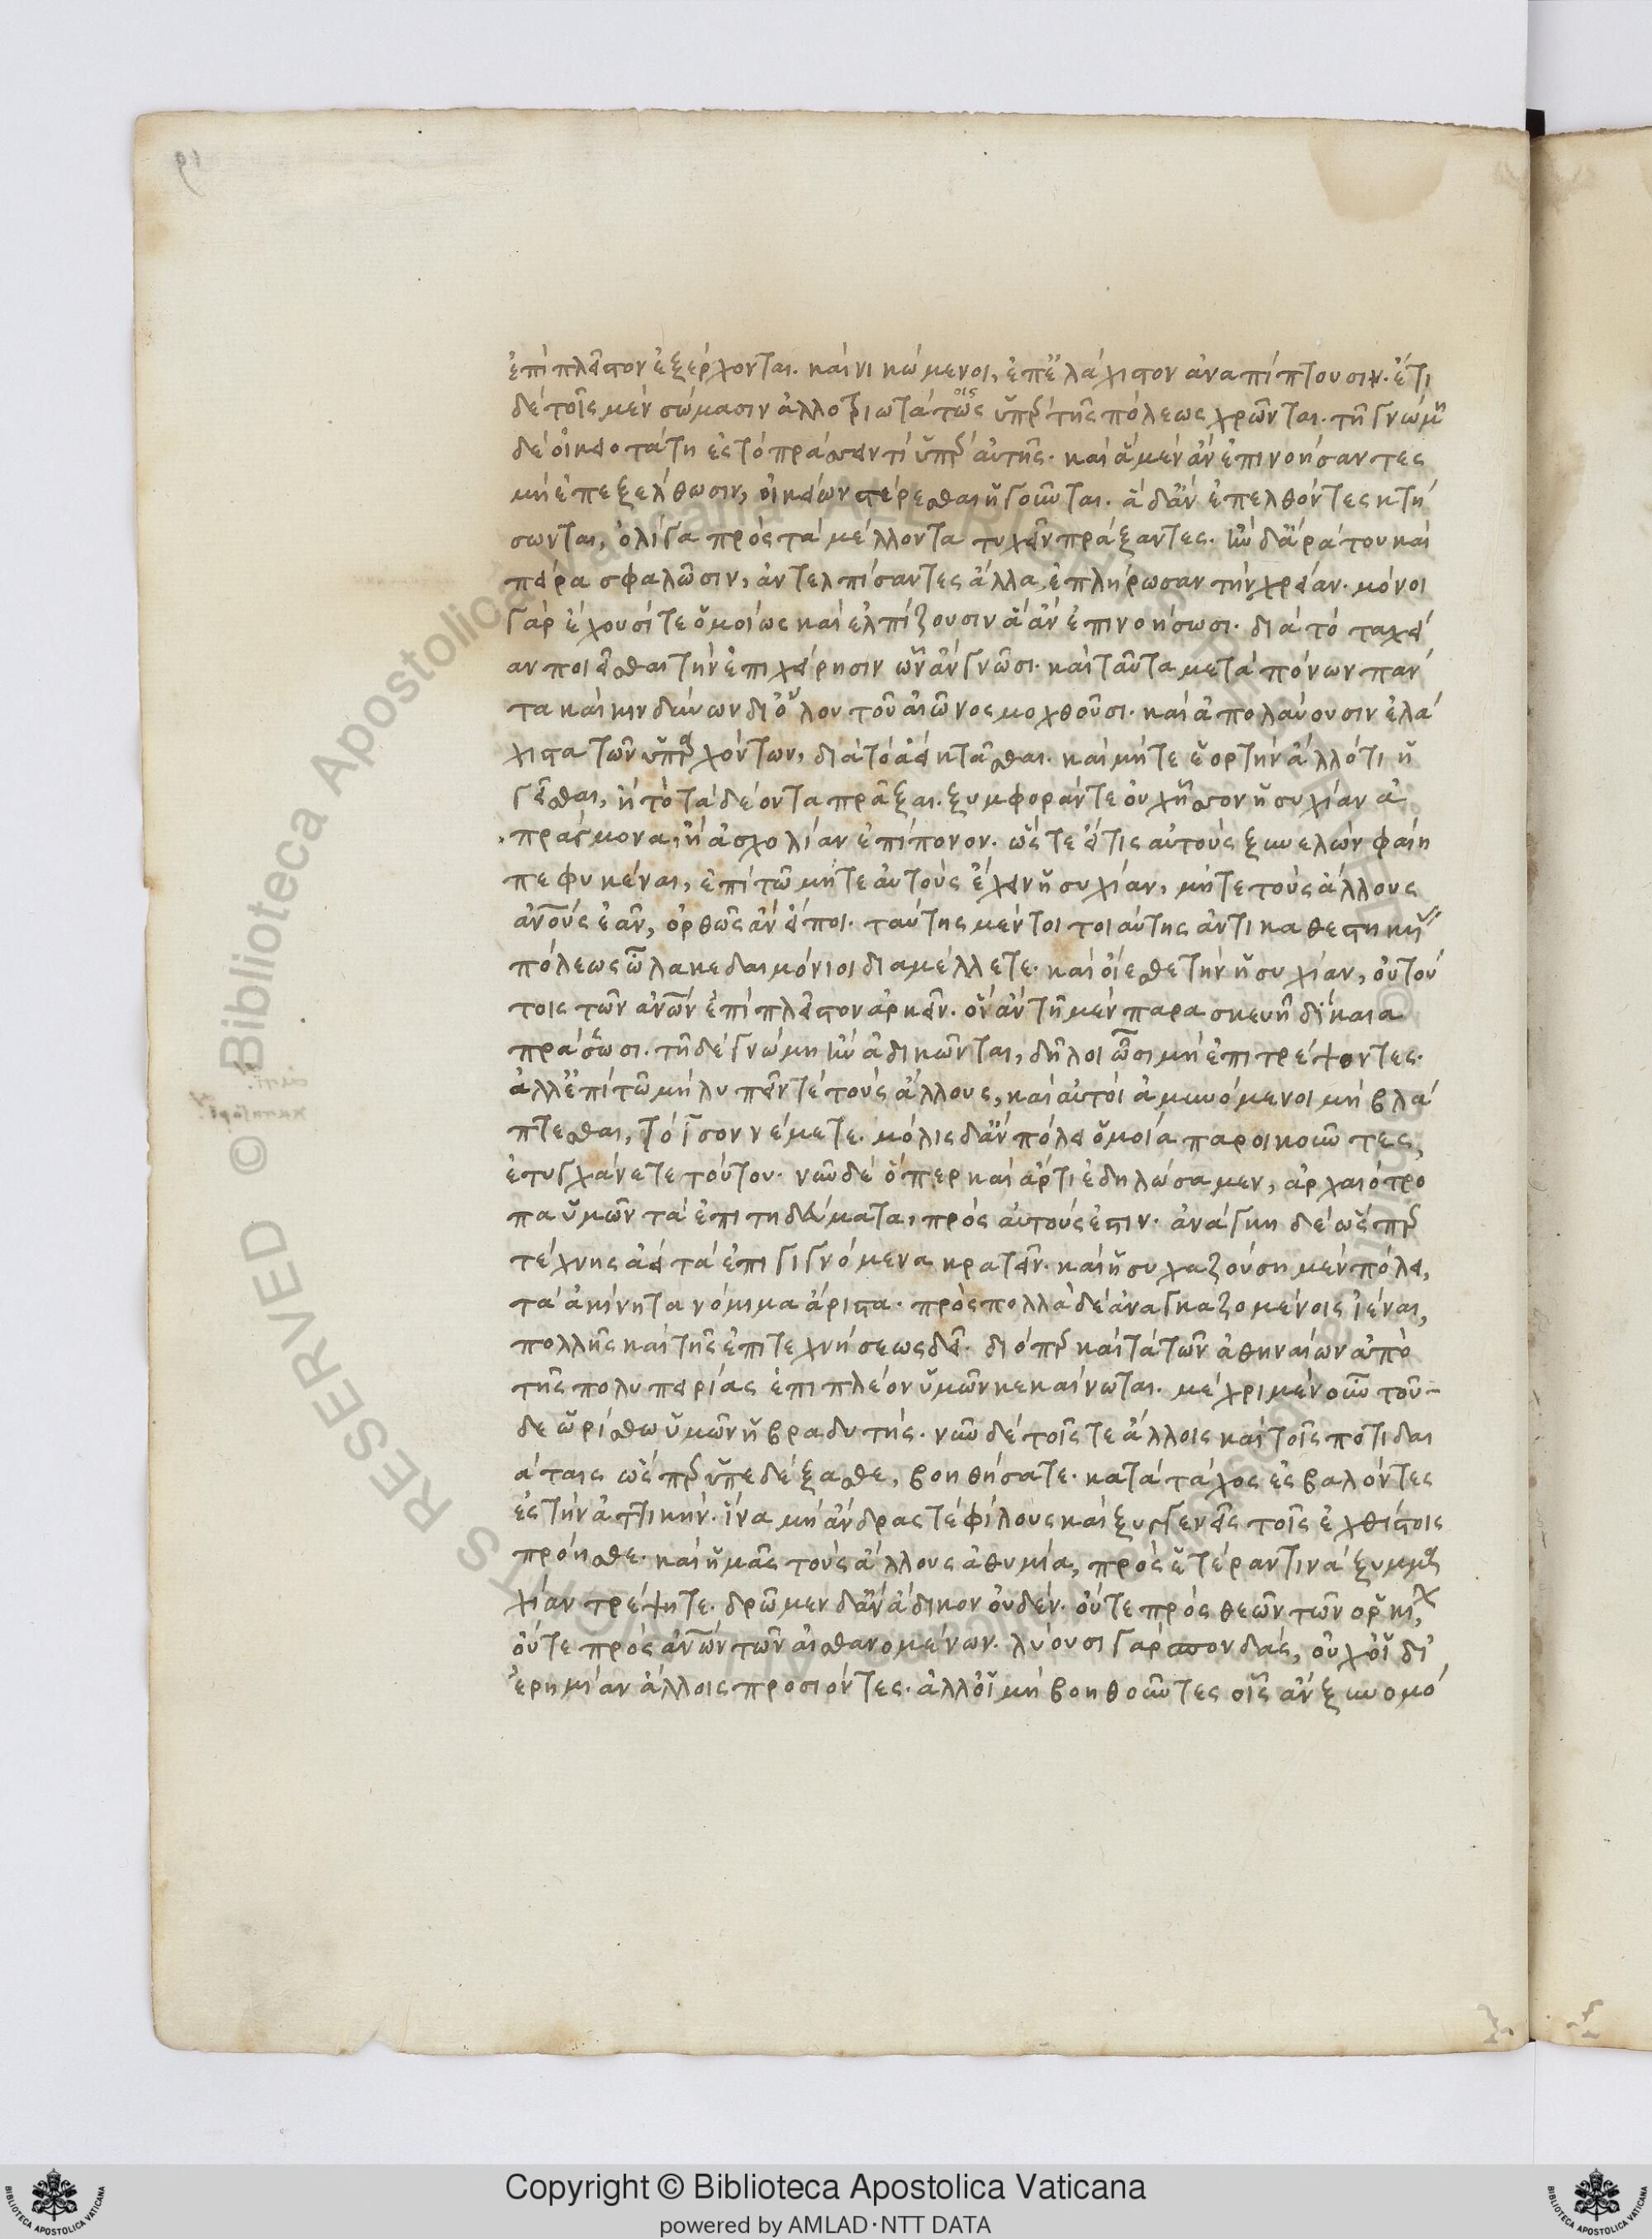 ἐπὶ πλεῖστον ἐξέρχονται. καὶ νικώμενοι, ἐπ' ἐλάχιστον ἀναπίπτουσιν. ἔτι
δὲ τοῖς μὲν σώμασιν ἀλλοτριωτάτως οις ὑπὲρ τῆς πόλεως χρῶνται. τῆ γνώμη
δὲ οἰκειοτάτη ἐς τὸ πράσσειν τὶ ὑπὲρ αὐτῆς. καὶ ἃ μὲν ἂν ἐπινοήσαντες
μὴ ἐπεξέλθωσιν, οἰκείων στέρεσθαι ἡγοῦνται. ἃ δ' ἂν ἐπελθόντες κτή
σωνται, ὀλίγα πρὸς τὰ μέλλοντα τυχεῖν πράξαντες. ἢν δ' ἄρά του καὶ
πείρα σφαλῶσιν, ἀντελπίσαντες ἄλλα, ἐπλήρωσαν τὴν χρείαν. μόνοι
γὰρ ἔχουσί τε ὁμοίως καὶ ἐλπίζουσιν ἃ ἂν ἐπινοήσωσι. διὰ τὸ ταχεῖ
αν ποιεῖσθαι τὴν ἐπιχείρησιν ὧν ἂν γνῶσι. καὶ ταῦτα μετὰ πόνων πάν
τα καὶ κινδύνων δι' ὅλου τοῦ αἰῶνος μοχθοῦσι. καὶ ἀπολαύουσιν ἐλά
χιστα τῶν ὑπαρχόντων, διὰ τὸ ἀεὶ κτᾶσθαι. καὶ μήτε ἑορτὴν ἄλλό τι ἡ
γεῖσθαι, ἢ τὸ τὰ δέοντα πρᾶξαι. ξυμφοράν τε οὐχ ἧσσον ἡσυχίαν ἀ
πράγμονα, ἢ ἀσχολίαν ἐπίπονον. ὥστε εἴ τις αὐτοὺς ξυνελὼν φαίη
πεφυκέναι, ἐπὶ τῶ μήτε αὐτοὺς ἔχειν ἡσυχίαν, μήτε τοὺς ἄλλους
ἀνους ἐᾶν, ὀρθῶς ἂν εἴποι. ταύτης μέντοι τοιαύτης ἀντικαθεστηκυί
πόλεως ὦ λακεδαιμόνιοι διαμέλλετε. καὶ οἴεσθε τὴν ἡσυχίαν, οὐ τού
τοις τῶν ἀνων ἐπὶ πλεῖστον ἀρκεῖν. οἳ ἂν τῆ μὲν παρασκευῆ δίκαια
πράσσωσι. τῆ δὲ γνώμη ἢν ἀδικῶνται, δῆλοι ὦσι μὴ ἐπιτρέψοντες.
ἀλλ' ἐπὶ τῶ μὴ λυπεῖν τὲ τοὺς ἄλλους, καὶ αὐτοὶ ἀμυνόμενοι μὴ βλά
πτεσθαι, τὸ ἴσον νέμετε. μόλις δ' ἂν πόλει ὁμοία παροικοῦντες,
ἐτυγχάνετε τούτου. νῦν δὲ ὅπερ καὶ ἄρτι ἐδηλώσαμεν, ἀρχαιότρο
πα ὑμῶν τὰ ἐπιτηδεύματα, πρὸς αὐτούς ἐστιν. ἀνάγκη δὲ ὥσπερ
τέχνης ἀεὶ τὰ ἐπιγιγνόμενα κρατεῖν. καὶ ἡσυχαζούση μὲν πόλει,
τὰ ἀκίνητα νόμιμα ἄριστα. πρὸς πολλὰ δὲ ἀναγκαζομένοις ἰέναι,
πολλῆς καὶ τῆς ἐπιτεχνήσεως δεῖ. διόπερ καὶ τὰ τῶν ἀθηναίων ἀπὸ
τῆς πολυπειρίας ἐπιπλέον ὑμῶν κεκαίνωται. μέχρι μὲν οὖν τοῦ-
δε ὡρίσθω ὑμῶν ἡ βραδυτής. νῦν δὲ τοῖς τε ἄλλοις καὶ τοῖς ποτιδαι
άταις ὥσπερ ὑπεδέξασθε, βοηθήσατε. κατὰ τάχος ἐσβαλόντες
ἐς τὴν ἀττικὴν. ἵνα μὴ ἄνδρας τὲ φίλους καὶ ξυγγενεῖς τοῖς ἐχθίστοις
πρόησθε. καὶ ἡμᾶς τοὺς ἄλλους ἀθυμία, πρὸς ἑτέραν τινὰ ξυμμα
χίαν τρέψητε. δρῶμεν δ' ἂν ἄδικον οὐδέν. οὔτε πρὸς θεῶν τῶν ὁρκί,
οὔτε πρὸς ἀνων τῶν αἰσθανομένων. λύουσι γὰρ σπονδάς, οὐχ οἱ δι'
ἐρημίαν ἄλλοις προσιόντες. ἀλλ' οἱ μὴ βοηθοῦντες οἷς ἂν ξυνομό
Copyright © Biblioteca Apostolica Vaticana
powered by AMLAD·NTT DATA